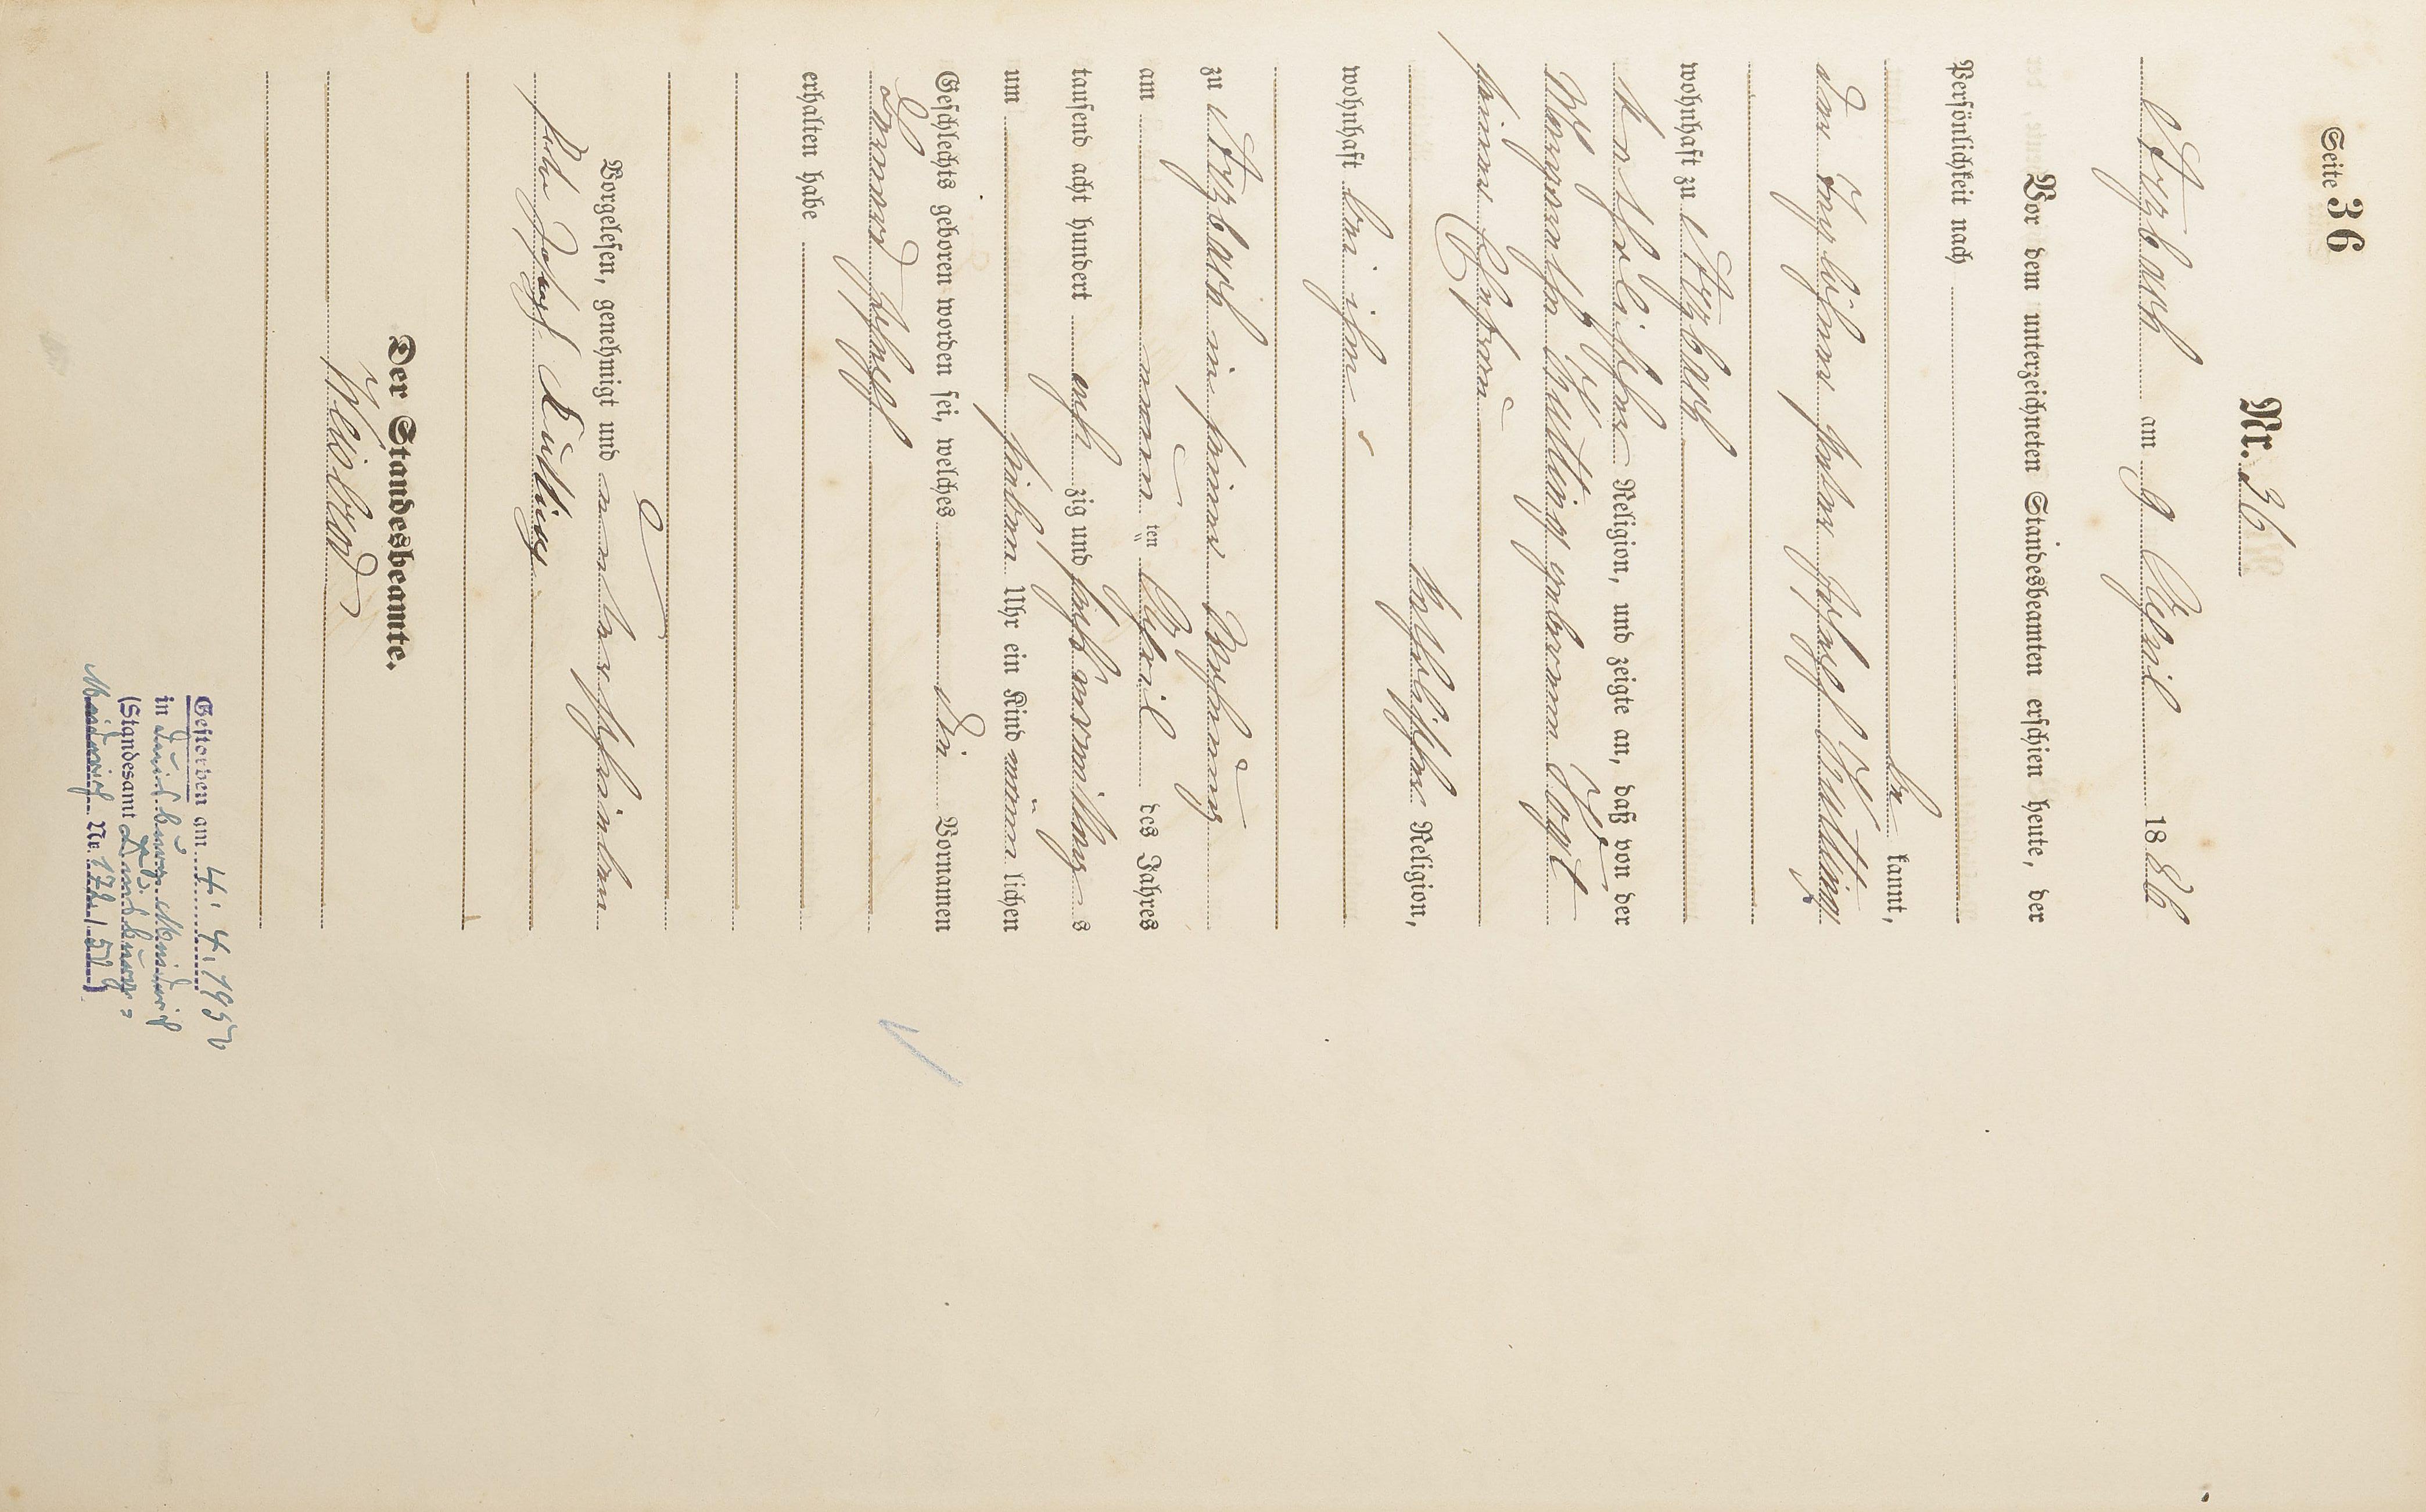 Seite 36
Nr. 36
Arzbach am 9 April 1886
Vor dem unterzeichneten Standesbeamten erschien heute, der
Persönlichkeit nach
be kannt,
der Taglöhner Johann Joseph Kulling
wohnhaft zu Arzbach
katholischer Religion, und zeigte an, daß von der
Margaretha Kulling geborenen Vogt
seiner Ehefrau
katholischer Religion,
wohnhaft bei ihm
zu Arzbach in seiner Wohnung
am neun ten April des Jahres
tausend acht hundert acht zig und sechs Vormittag s
um sieben Uhr ein Kind männ lichen
Geschlechts geboren worden sei, welches die Vornamen
Joseph
erhalten habe
Vorgelesen, genehmigt und unterschrieben
Joh Joseph Kulling
Der Standesbeamte.
Gestorben am 4. 4. 1956
in Duisburg-Meiderich
(Standesamt Duisburg-
Meiderich Nr. 172/56)